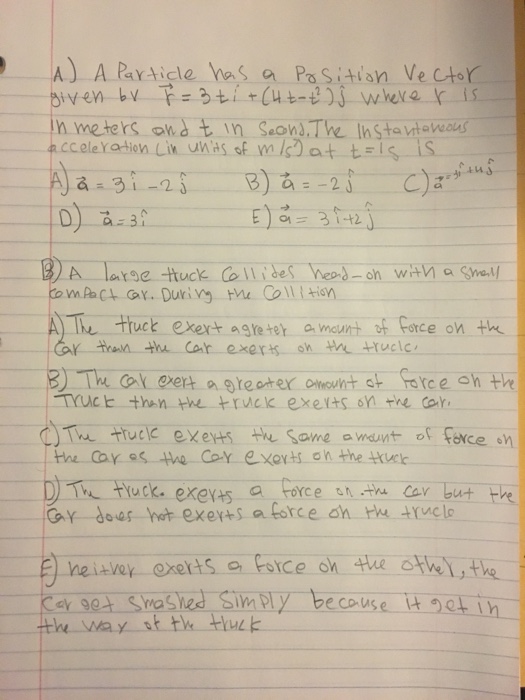 A) A Particle has a Position Vector
given by r⃗ = 3tî + (4t-t²)ĵ where r is
in meters and t in Second. The Instantaneous
acceleration (in units of m/s²) at t=1s is
A) a⃗ = 3î - 2ĵ B) a⃗ = -2ĵ C) a⃗ = 3î+4ĵ
D) a⃗ = 3î E) a⃗ = 3î+2ĵ
B) A large truck Collides head-on with a small
compact car. During the Collition
A) The truck exert a greter amount of force on the
Car than the car exerts on the truck.
B) The car exert a greater amount of force on the
Truck than the truck exerts on the car.
C) The truck exerts the Same amount of force on
the car as the Car exerts on the truck
D) The truck. exerts a force on the car but the
Car does not exerts a force on the truck
E) neither exerts a force on the other, the
Car get smashed Simply because it get in
the way of the truck